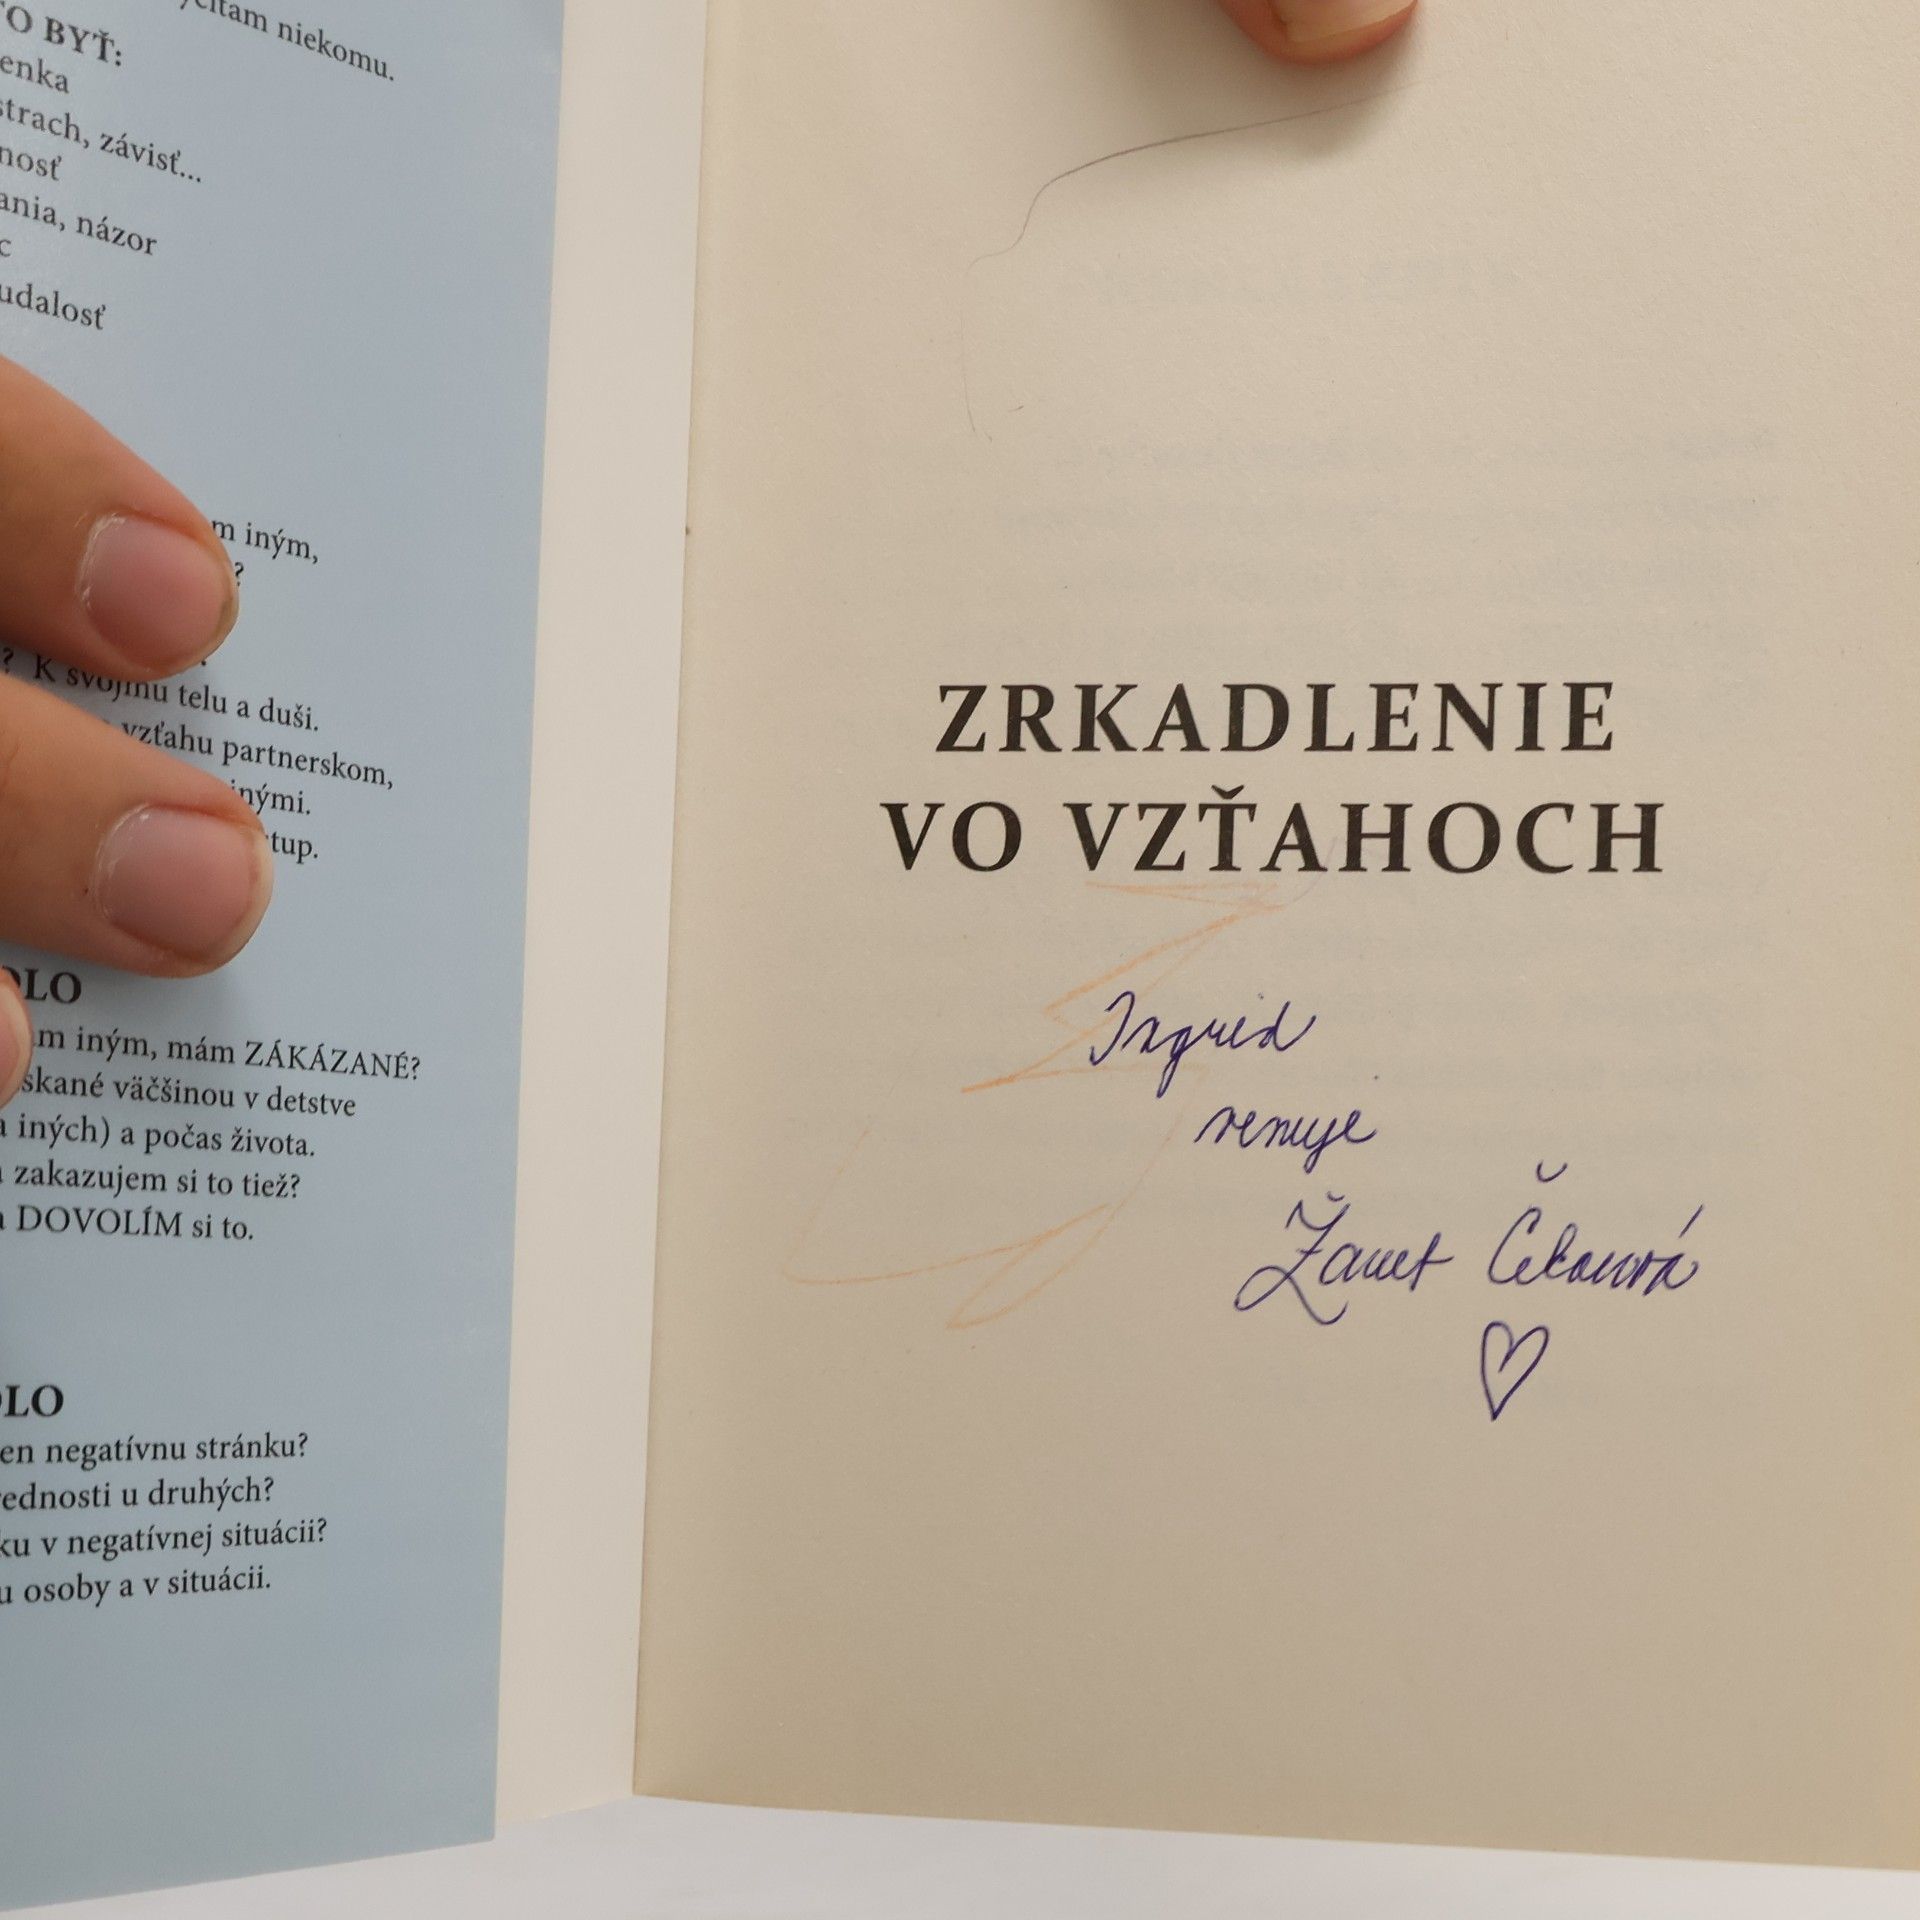 niekomu.
TO BYŤ:
enka
strach, závisť...
nosť
ania, názor
c
udalosť
m iným,
?
? K svojmu telu a duši.
vzťahu partnerskom,
inými.
tup.
DLO
am iným, mám ZÁKÁZANÉ?
skané väčšinou v detstve
a iných) a počas života.
zakazujem si to tiež?
a DOVOLÍM si to.
DLO
en negatívnu stránku?
rednosti u druhých?
ku v negatívnej situácii?
u osoby a v situácii.
ZRKADLENIE
VO VZŤAHOCH
Ingrid
venuje
Žanet